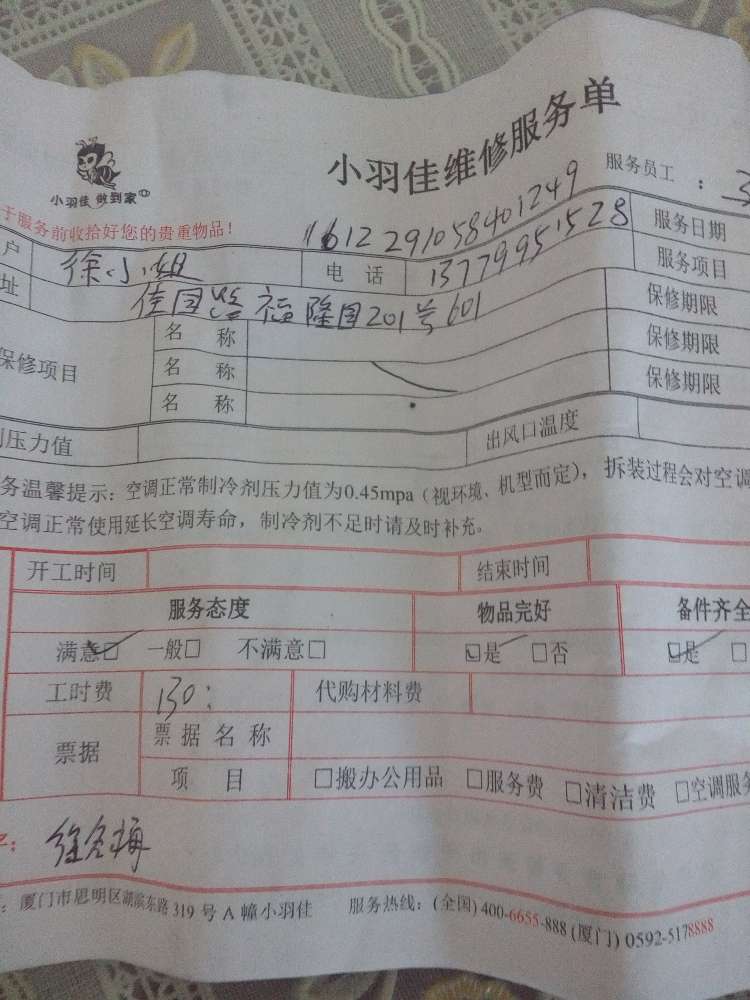 小羽佳维修服务单
小羽佳 做到家
服务员工：
于服务前收拾好您的贵重物品！
1612291058401249
服务日期
户 徐小姐 电 话 13779951528
服务项目
址 佳园路福隆园201号601
保修期限
保修项目 名 称
保修期限
名 称
保修期限
名 称
压力值 出风口温度
务温馨提示：空调正常制冷剂压力值为0.45mpa（视环境、机型而定），拆装过程会对空调
空调正常使用延长空调寿命，制冷剂不足时请及时补充。
开工时间 结束时间
服务态度 物品完好 备件齐全
满意□ 一般□ 不满意□ □是 □否 □是 □
工时费 130： 代购材料费
票据 票 据 名 称
项 目 □搬办公用品 □服务费 □清洁费 □空调服务
：厦门市思明区湖滨东路319号A幢小羽佳 服务热线：(全国) 400-6655-888 (厦门) 0592-5178888